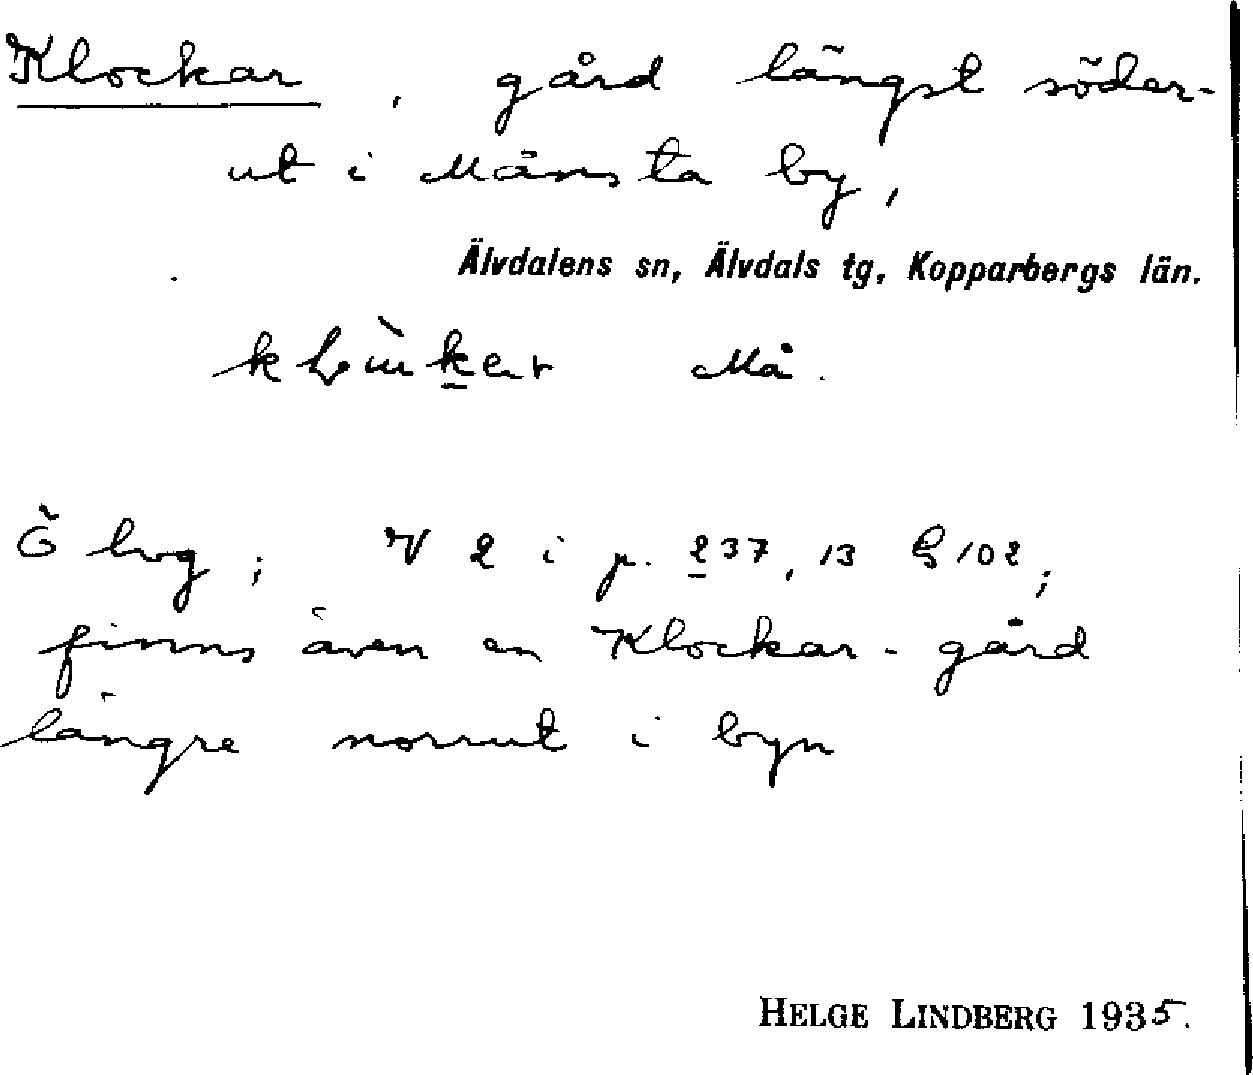 Klockar, gård längst söder-
ut i Månsta by,
Älvdalens sn, Älvdals tg, Kopparbergs län.
Må.
Ö lvg; V 2 i p. 237, 13 G 102;
finns även en Klockar-gård
längre norrut i byn
HELGE LINDBERG 1935.